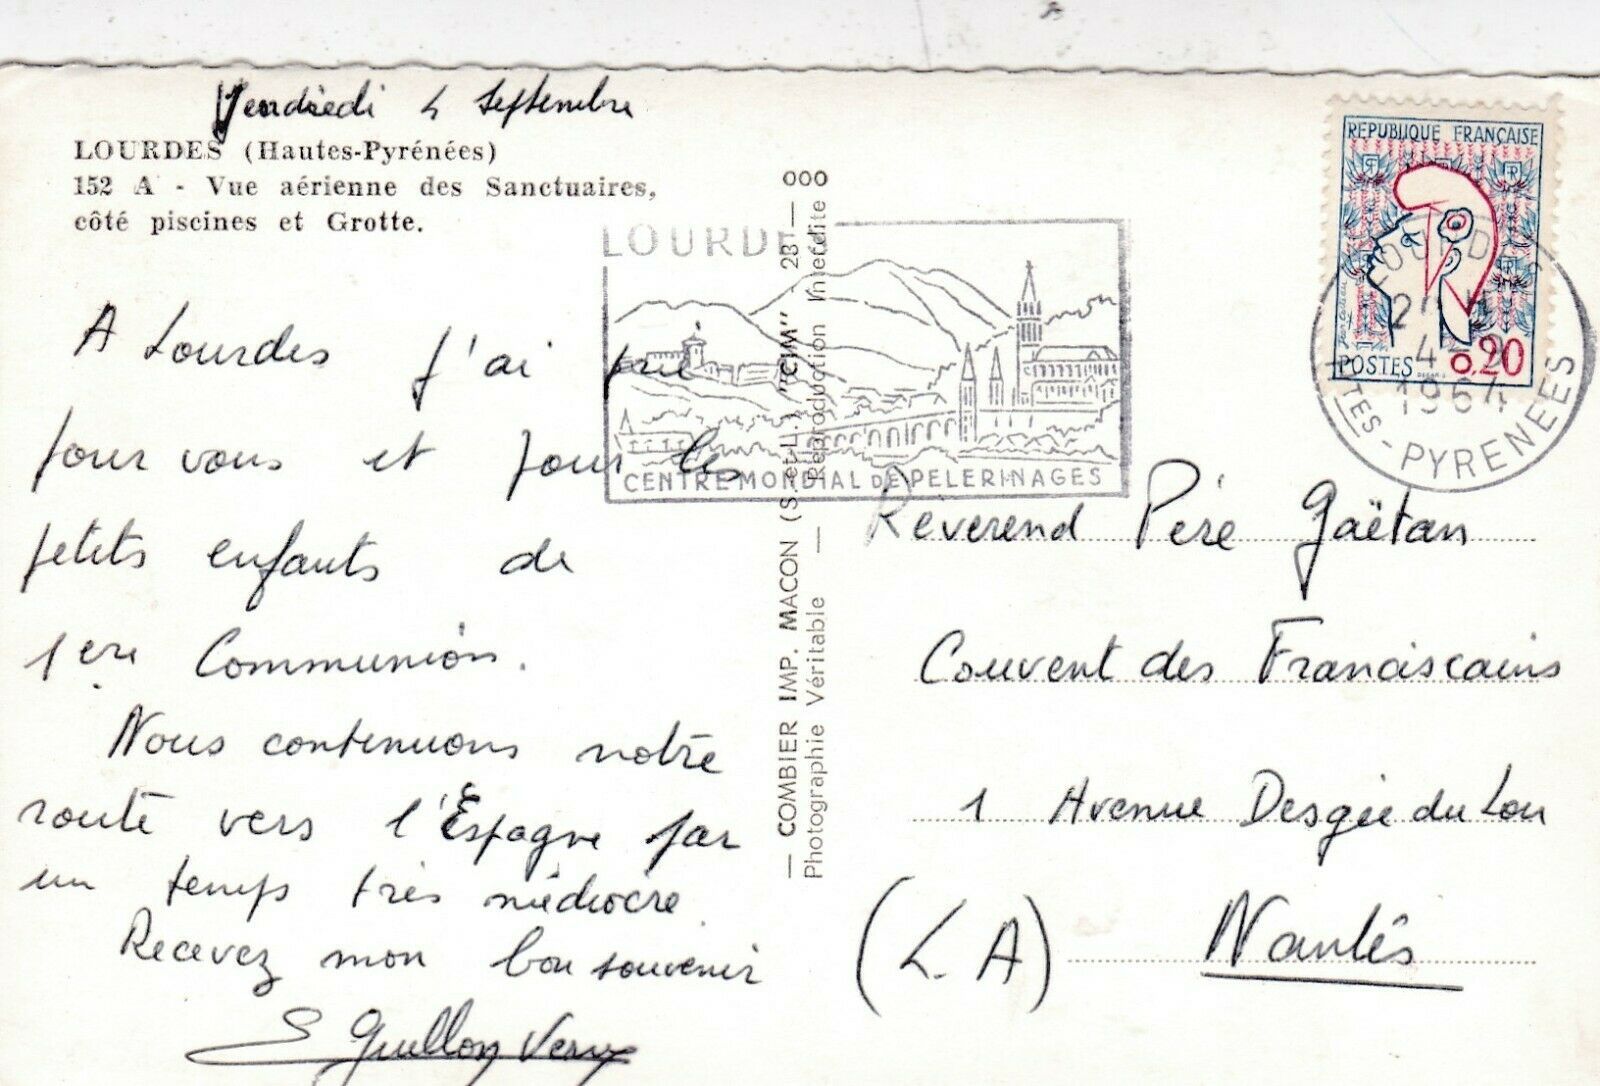 Vendredi 4 Septembre
LOURDES (Hautes-Pyrénées)
152 A - Vue aérienne des Sanctuaires,
côté piscines et Grotte.
A Lourdes j'ai prié
pour vous et pour les
petits enfants de
1ere Communion.
Nous contenuons notre
route vers l'Espagne par
un temps très médiocre
Recevez mon bon souvenir
— COMBIER IMP. MACON (S.-et-L.) "CIM" 281 — 000
Photographie Véritable — Reproduction Interdite
LOURDES
CENTRE MONDIAL DE PELERINAGES
REPUBLIQUE FRANÇAISE
POSTES 0,20
LOURDES
4-9
1964
HTES-PYRENEES
Reverend Père Gaëtan
Couvent des Franciscains
1 Avenue Desgée du Lou
(L.A) Nantes